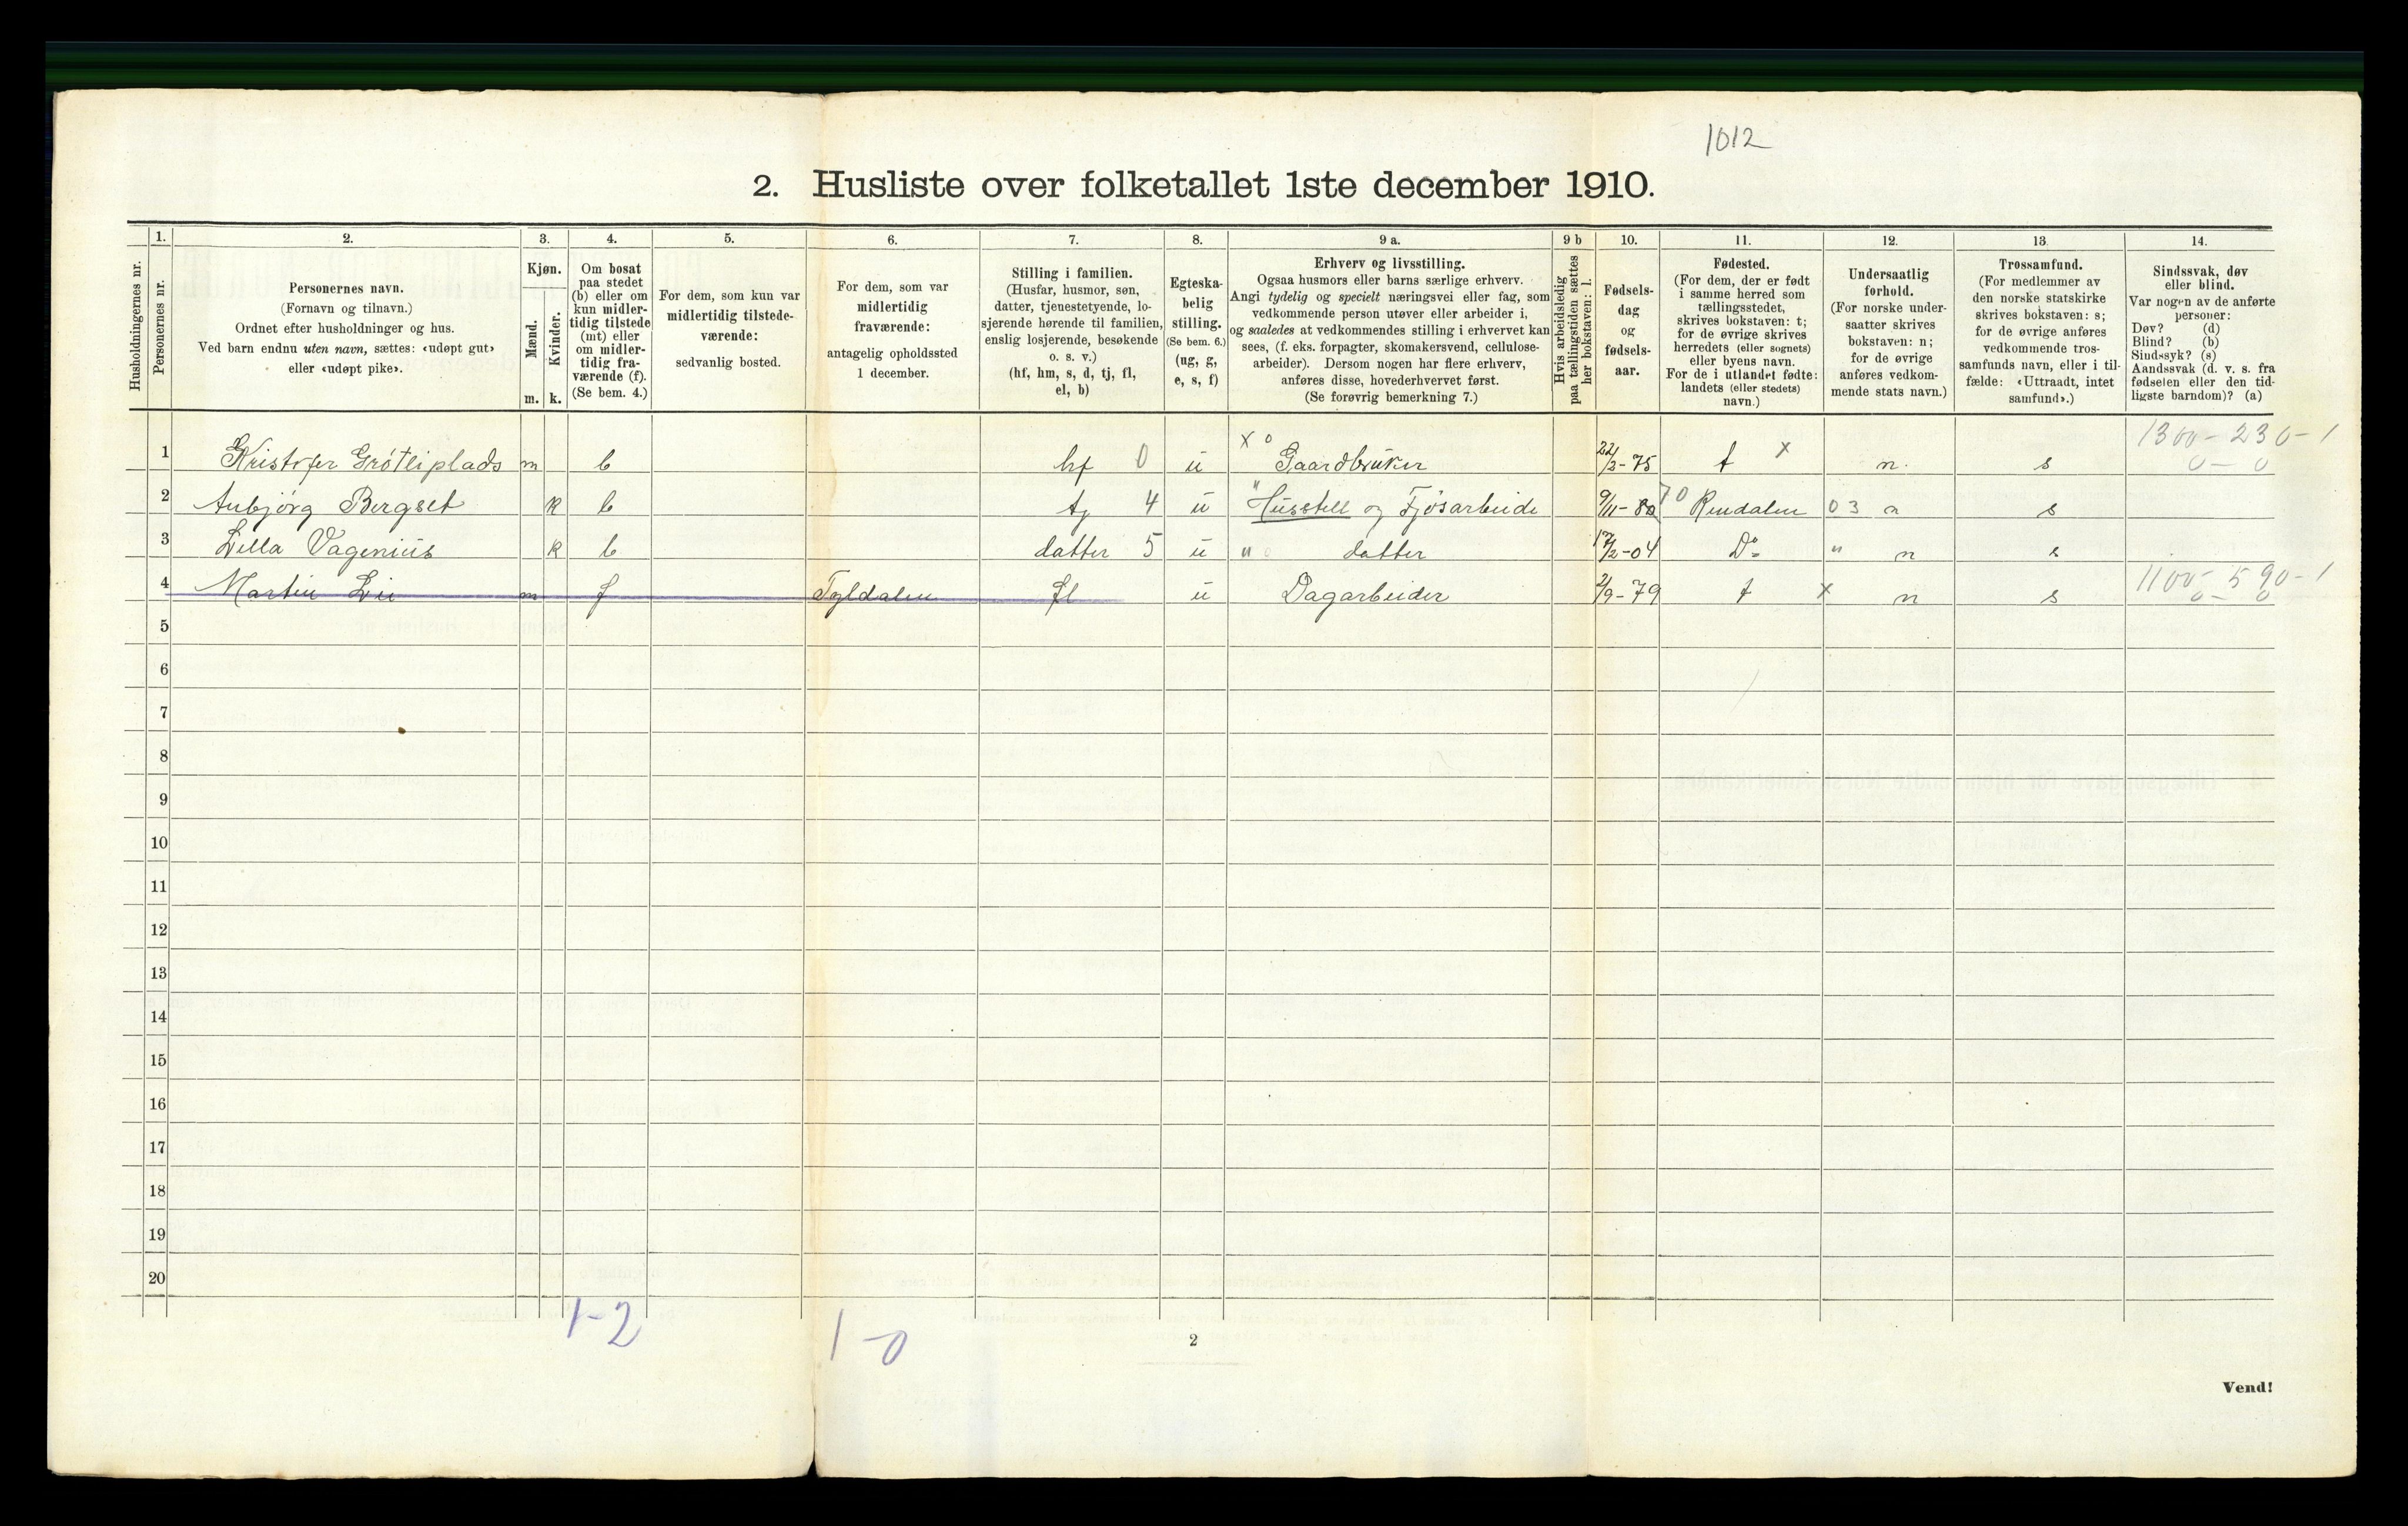 1012
2. Husliste over folketallet 1ste december 1910.
Husholdningernes nr.
1.
Personernes nr.
2.
Personernes navn.
(Fornavn og tilnavn.)
Ordnet efter husholdninger og hus.
Ved barn endnu uten navn, sættes: «udøpt gut»
eller «udøpt pike».
3.
Kjøn.
Mænd.
Kvinder.
m. k.
4.
Om bosat
paa stedet
(b) eller om
kun midler-
tidig tilstede
(mt) eller
om midler-
tidig fra-
værende (f).
(Se bem. 4.)
5.
For dem, som kun var
midlertidig tilstede-
værende:
sedvanlig bosted.
6.
For dem, som var
midlertidig
fraværende:
antagelig opholdssted
1 december.
7.
Stilling i familien.
(Husfar, husmor, søn,
datter, tjenestetyende, lo-
sjerende hørende til familien,
enslig losjerende, besøkende
o. s. v.)
(hf, hm, s, d, tj, fl,
el, b)
8.
Egteska-
belig
stilling.
(Se bem. 6.)
(ug, g,
e, s, f)
9 a.
Erhverv og livsstilling.
Ogsaa husmors eller barns særlige erhverv.
Angi tydelig og specielt næringsvei eller fag, som
vedkommende person utøver eller arbeider i,
og saaledes at vedkommendes stilling i erhvervet kan
sees, (f. eks. forpagter, skomakersvend, cellulose-
arbeider). Dersom nogen har flere erhverv,
anføres disse, hovederhvervet først.
(Se forøvrig bemerkning 7.)
9 b
Hvis arbeidsledig
paa tællingstiden sættes
her bokstaven: l.
10.
Fødsels-
dag
og
fødsels-
aar.
11.
Fødested.
(For dem, der er født
i samme herred som
tællingsstedet,
skrives bokstaven: t;
for de øvrige skrives
herredets (eller sognets)
eller byens navn.
For de i utlandet fødte:
landets (eller stedets)
navn.)
12.
Undersaatlig
forhold.
(For norske under-
saatter skrives
bokstaven: n;
for de øvrige
anføres vedkom-
mende stats navn.)
13.
Trossamfund.
(For medlemmer av
den norske statskirke
skrives bokstaven: s;
for de øvrige anføres
vedkommende tros-
samfunds navn, eller i til-
fælde: «Uttraadt, intet
samfund».)
14.
Sindssvak, døv
eller blind.
Var nogen av de anførte
personer:
Døv? (d)
Blind? (b)
Sindssyk? (s)
Aandssvak (d. v. s. fra
fødselen eller den tid-
ligste barndom)? (a)
1300-230-1
1 Kristofer Grötliplads m b hf 0 u x o Gaardbruker 22/2-75 t x n. s 0-0
2 Anbjörg Bergset k b tj 4 u " Husstell og Fjösarbeide 9/11-80 70 Rendalen 03 n s
3 Lilla Vagenius k b datter 5 u " o datter 17/2-04 Do " n s
1100-590-1
4 Martin Lie m f Tyldalen fl u Dagarbeider 2/9-79 t x n s 0-0
5
6
7
8
9
10
11
12
13
14
15
16
17
18
19
20
1-2
1-0
2
Vend!